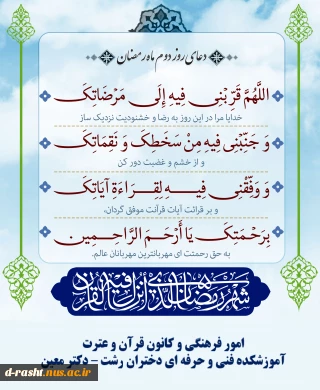 دعای روز دوم ماه رمضان
اللَّهُمَّ قَرِّبْنِی فِیهِ إِلَی مَرْضَاتِکَ
خدایا مرا در این روز به رضا و خشنودیت نزدیک ساز
وَ جَنِّبْنِی فِیهِ مِنْ سَخَطِکَ وَ نَقِمَاتِکَ
و از خشم و غضبت دور کن
وَ وَفِّقْنِی فِیهِ لِقِرَاءَةِ آیَاتِکَ
و بر قرائت آیات قرآنت موفق گردان،
بِرَحْمَتِکَ یَا أَرْحَمَ الرَّاحِمِینَ
به حق رحمتت ای مهربانترین مهربانان عالم.
شهر رمضان الذی انزل فیه القرآن
امور فرهنگی و کانون قرآن و عترت
آموزشکده فنی و حرفه ای دختران رشت - دکتر معین
d-rasht.nus.ac.ir